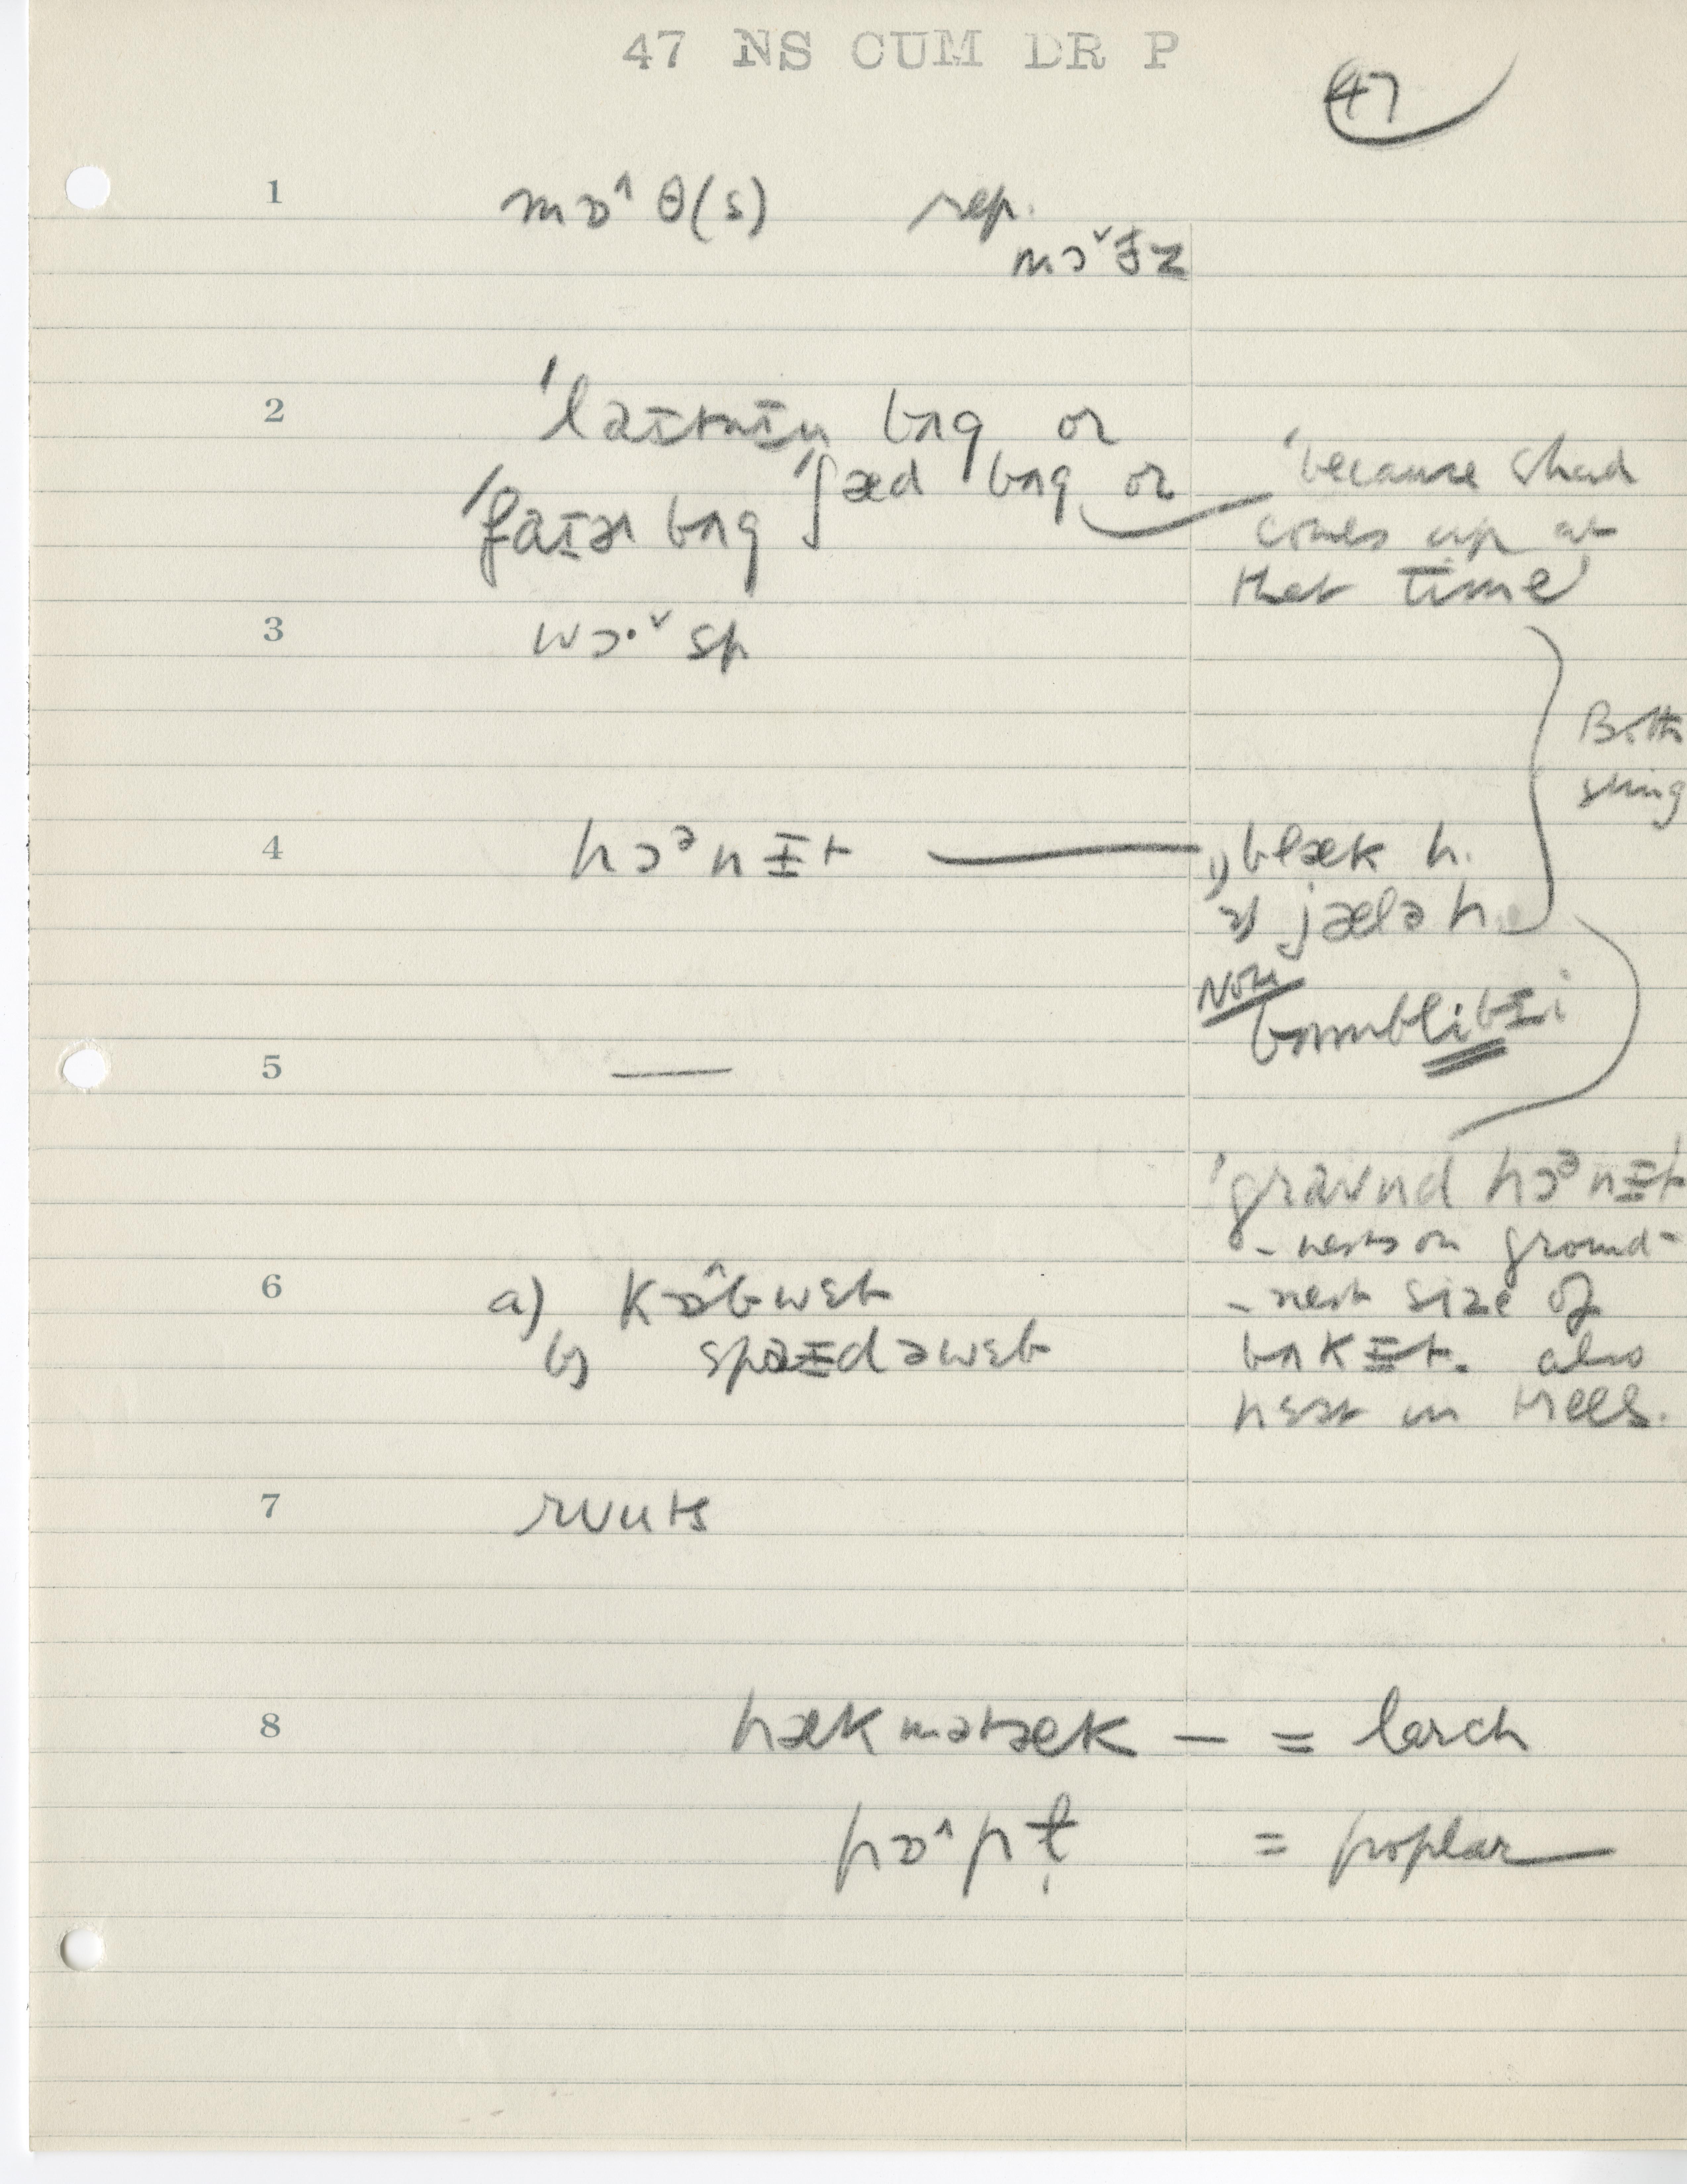 47 NS CUM DR P
47
1 mɒ^θ(s) rep.
mɔˇðz
2 ˈlaɪtnɪn bʌg or
ˈʃæd bʌg or
ˈfaɪɚ bʌg
'because shad
comes up at
that time'
3 wɔ·ˇsp
Both
sting
4 hɔᵊnɪt — 1) blæk h.
2) jælə h.
Note
bʌmblibɪi
5 —
ˈgraʊnd hɔᵊnɪt
- nests on ground -
- nest size of
bʌkɪt. also
nest in trees.
6 a) kɒ^bwɛb
b) spaɪdəwɛb
7 rʊuts
8 hækmətæk — = larch
pɒ^pɫ̩ = poplar